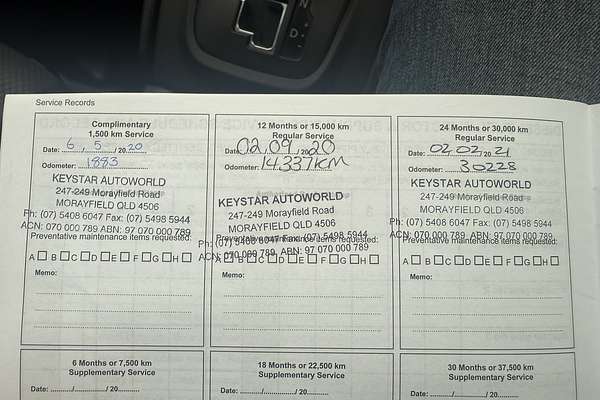 D
Service Records
Complimentary
1,500 km Service
Date: 6 / 5 / 2020
Odometer: 1883
KEYSTAR AUTOWORLD
247-249 Morayfield Road
MORAYFIELD QLD 4506
Ph: (07) 5408 6047 Fax: (07) 5498 5944
ACN: 070 000 789 ABN: 97 070 000 789
Preventative maintenance items requested:
A B C D E F G H
Memo:
12 Months or 15,000 km
Regular Service
Date: 02.09.2020
Odometer: 14,337KM
KEYSTAR AUTOWORLD
247-249 Morayfield Road
MORAYFIELD QLD 4506
Preventative maintenance items requested:
Ph: (07) 5408 6047 Fax: (07) 5498 5944
ACN: 070 000 789 ABN: 97 070 000 789
A B C D E F G H
Memo:
24 Months or 30,000 km
Regular Service
Date: 02/02/2021
Odometer: 30228
KEYSTAR AUTOWORLD
247-249 Morayfield Road
MORAYFIELD QLD 4506
Ph: (07) 5408 6047 Fax: (07) 5498 5944
ACN: 070 000 789 ABN: 97 070 000 789
Preventative maintenance items requested:
A B C D E F G H
Memo:
6 Months or 7,500 km
Supplementary Service
Date: ........./........./ 20.........
18 Months or 22,500 km
Supplementary Service
Date: ........./........./ 20.........
30 Months or 37,500 km
Supplementary Service
Date: ........./........./ 20.........